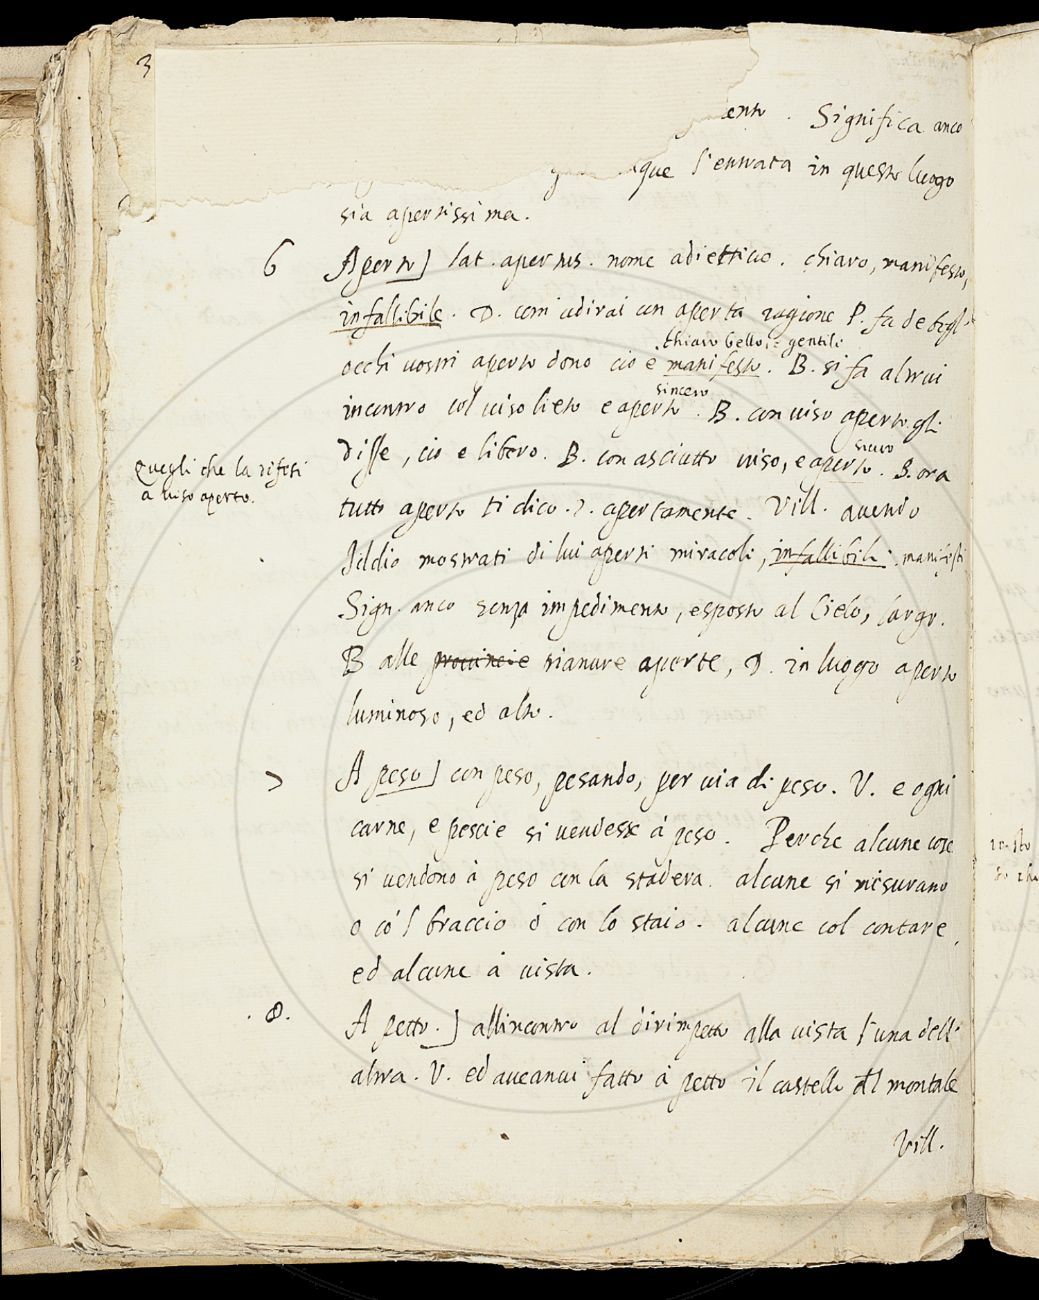 3
ento. Significa anco
que l'entrata in questo luogo
sia apertissima.
6 Aperto] lat. apertus. nome adiettiuo. chiaro, manifesto,
infallibile. D. com udirai con aperta ragione P. fa de begl'
chiaro bello: gentile
occhi uostri aperto dono cio è manifesto. B. si fa altrui
sincero
incontro col uiso lieto e aperto. B. con uiso aperto gli
disse, cio e libero. B. con asciutto uiso, e aperto. B. ora
sicuro
Quegli che la difesi
a uiso aperto.
tutto aperto ti dico. D. apertamente. Vill. auendo
Iddio mostrati di lui aperti miracoli, infallibili, manifesti
Sign. anco senza impedimento, esposto al Cielo, largo.
B alle prouincie pianure aperte, D. in luogo aperto
luminoso, ed alto.
7 A peso] con peso, pesando, per uia di peso. V. e ogni
carne, e pescie si uendesse à peso. Perche alcune cose
si uendono à peso con la stadera. alcune si misurano
o co'l braccio ò con lo staio. alcune col contare,
ed alcune à uista.
.8. A petto.] allincontro al dirimpetto alla uista l'una dell'
altra. V. ed aueanui fatto à petto il castello Al montale
Vill.